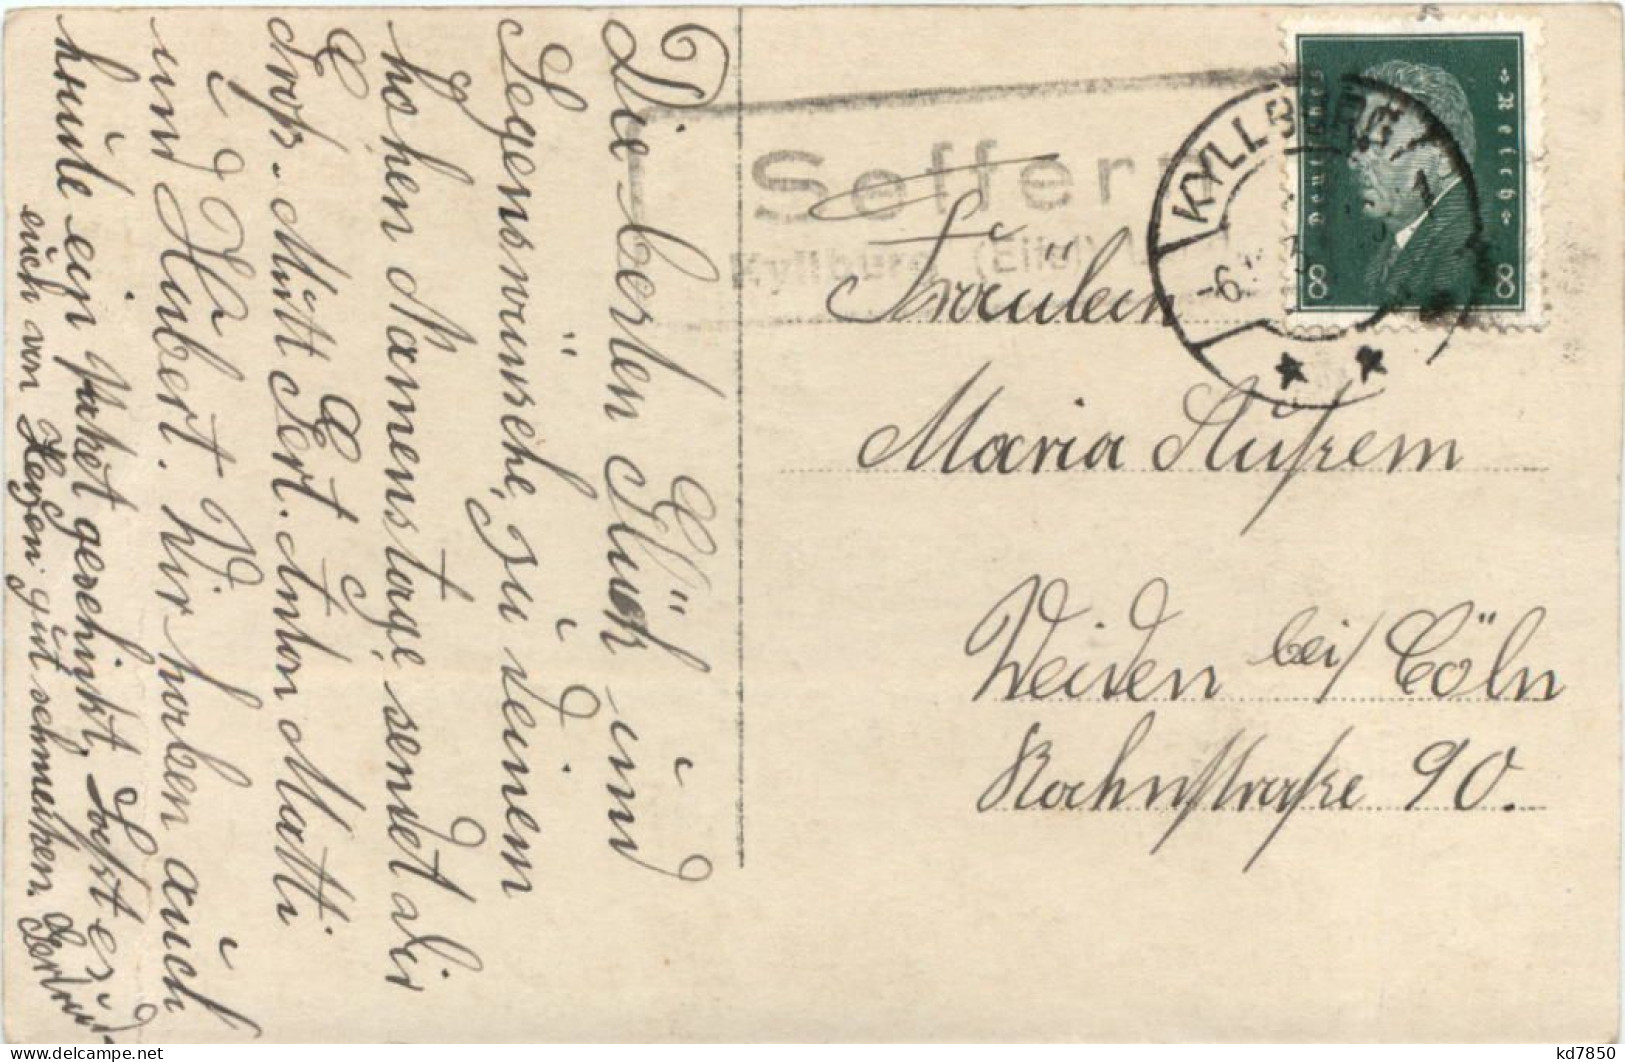 Die besten Glück und
Segenswünsche, zu deinem
hohen Namenstage, sendet dir
Groß-Mutt Gert. Anton Matti
und Hubert. Wir haben auch
heute ein Paket geschikt, Laßt es
euch von Herzen gut schmecken. Gertrud
Seffern
Kyllburg (Eifel) Land
KYLLBURG
Deutsches Reich
8 8
Fräulein
Maria
Weiden bei/ Cöln
90.
kd7850